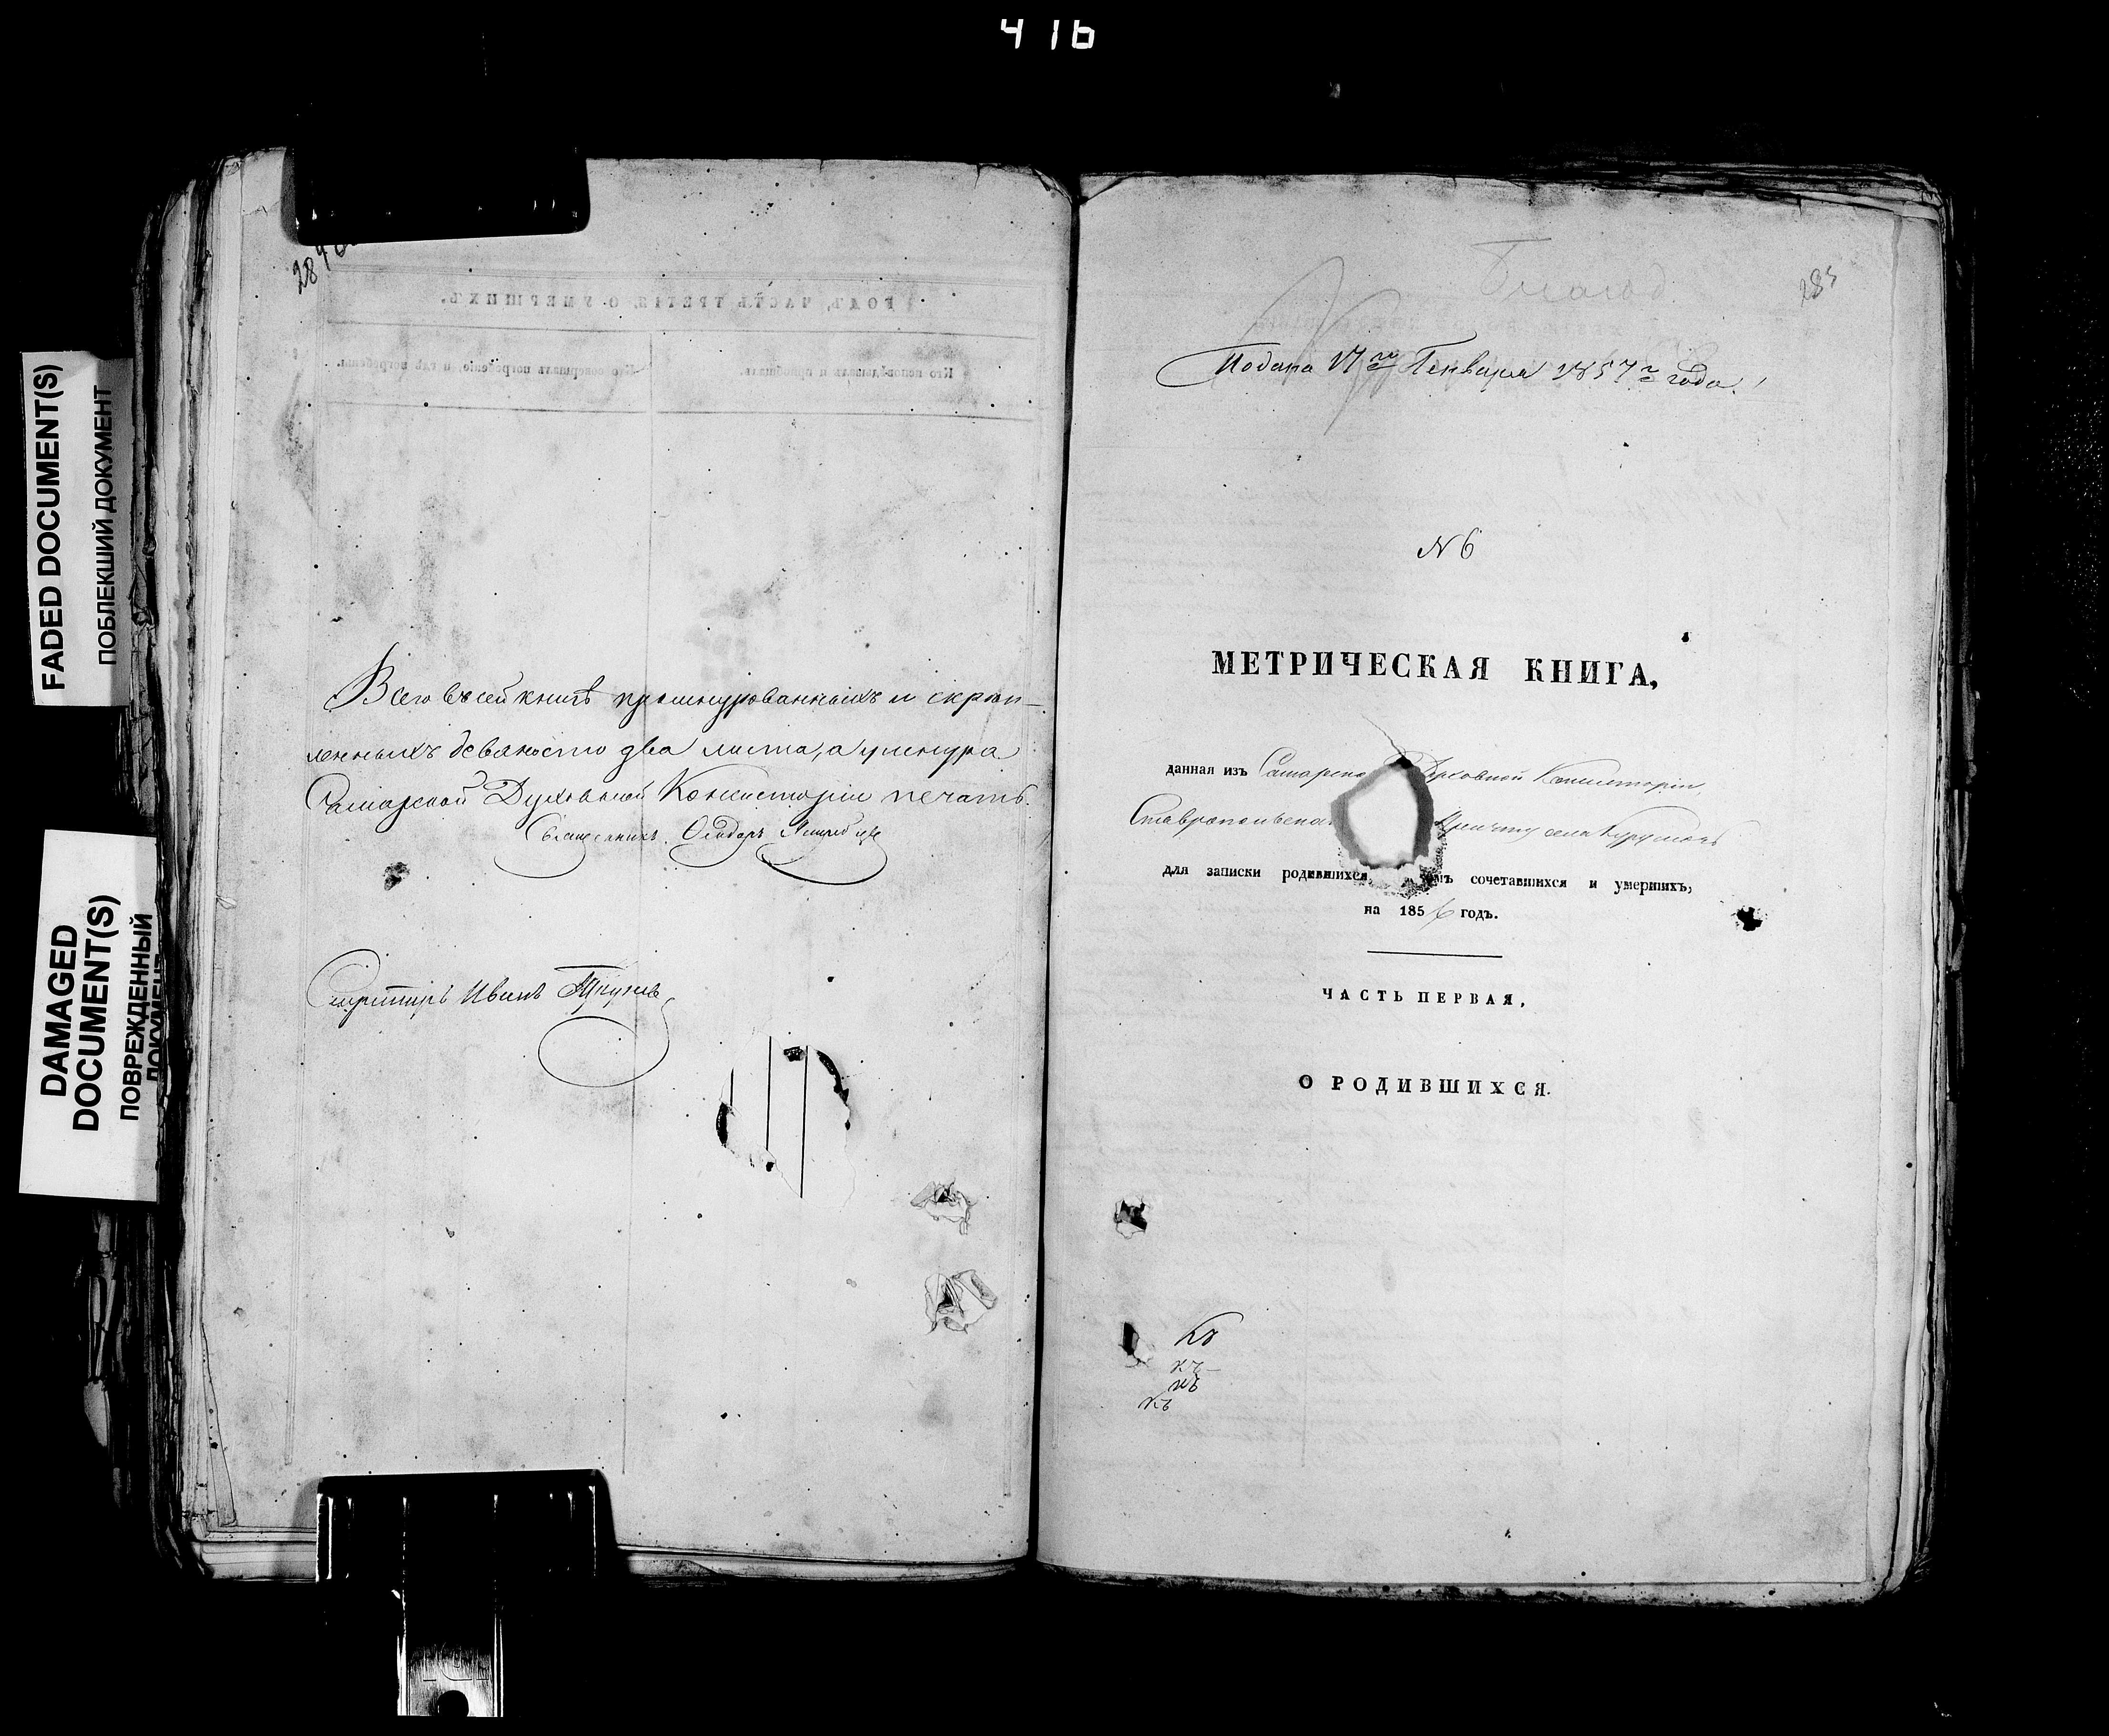 416
FADED DOCUMENT(S)
ПОБЛЕКШИЙ ДОКУМЕНТ
DAMAGED
DOCUMENT(S)
ПОВРЕЖДЕННЫЙ
ДОКУМЕНТ
ГОДЪ, ЧАСТЬ ТРЕТІЯ, О УМЕРШИХЪ.
Кто исповѣдывалъ и пріобщалъ.
Кто совершалъ погребеніе, и гдѣ погребены.
Всего въ сей книгѣ прошнурованныхъ и скрѣп-
ленныхъ девяносто два листа, а у шнура
Самарской Духовной Консисторіи печать.
Священникъ Ѳеодоръ
Секретарь Иванъ
285
Подана 17го Генваря 1857го года!
N 6
МЕТРИЧЕСКАЯ КНИГА,
данная изъ Самарско Духовной Консисторіи,
Ставропольска Причту села
для записки родившихся омъ сочетавшихся и умершихъ,
на 1856 годъ.
ЧАСТЬ ПЕРВАЯ,
О РОДИВШИХСЯ.
къ
къ
къ
къ